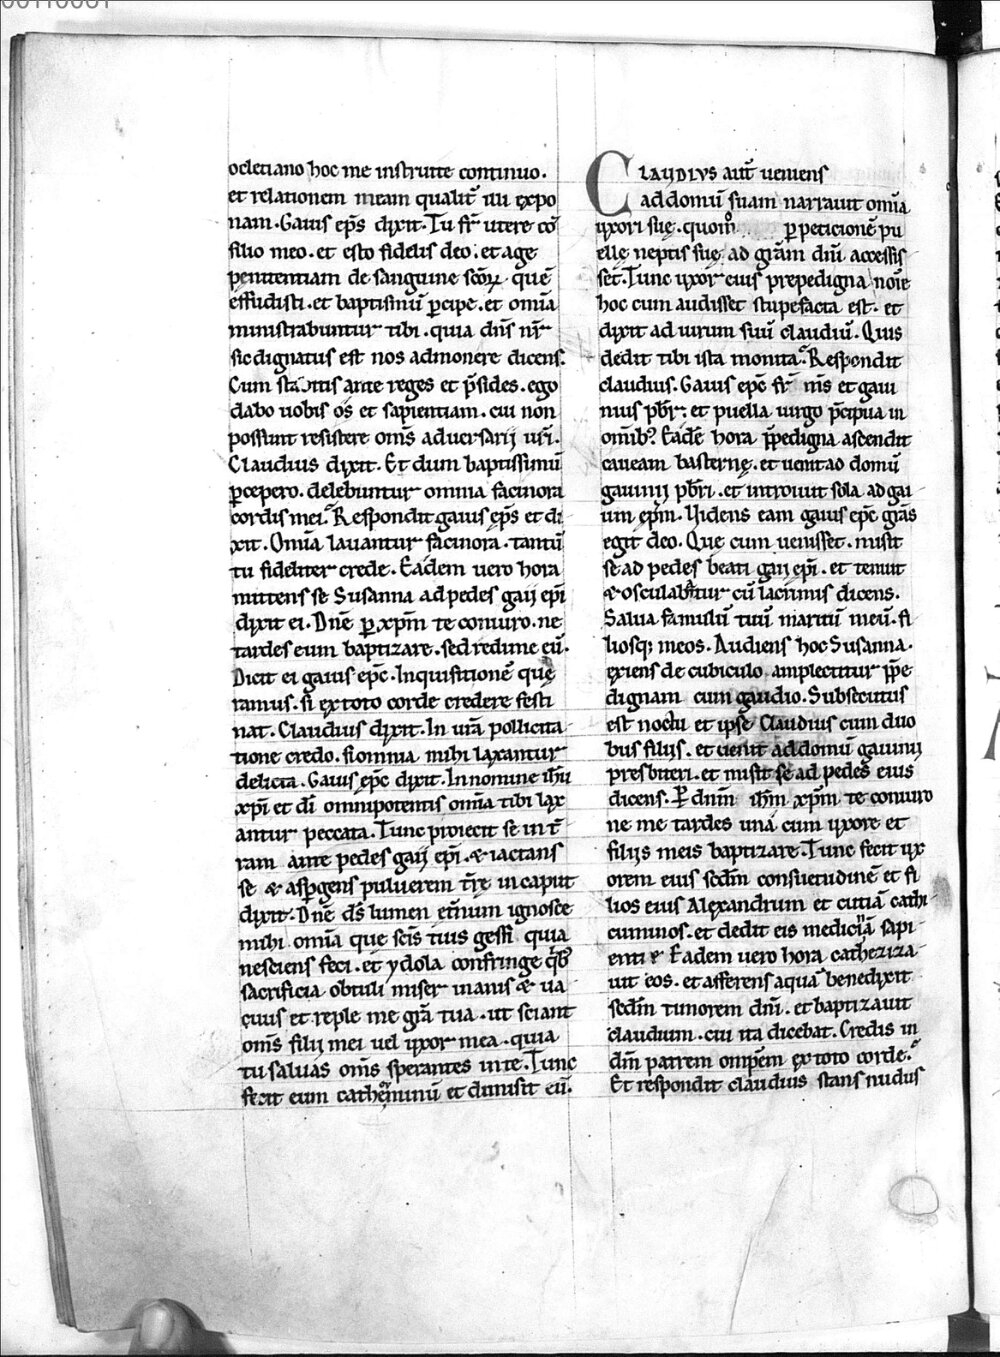 ocletiano hoc me instruite continuo.
et relationem meam qualit̄ illi expo
nam. Gaius ep̄s dixit. Tu fr̄ utere cō
silio meo. et esto fidelis deo. et age
penitentiam de sanguine sc̄oꝝ quē
effudisti. et baptismū ꝑcipe. et om̄ia
ministrabuntur tibi. quia dn̄s nr̄
sic dignatus est nos admonere dicens.
Cum steteritis ante reges et p̄sides. ego
dabo uobis os et sapientiam. cui non
possunt resistere om̄s aduersarij ur̄i.
Claudius dixit. Et dum baptissimū
ꝑcepero. delebuntur omnia facinora
cordis mei. Respondit gaius ep̄s et di
xit. Om̄ia lauantur facinora. tantū
tu fideliter crede. Eadem uero hora
mittens se Susanna ad pedes gaij ep̄i
dixit ei. Dn̄e ꝑ xp̄m te coniuro. ne
tardes eum baptizare. sed redime eū.
Dicit ei gaius ep̄c. Inquisitionē quę
ramus. si ex toto corde credere festi
nat. Claudius dixit. In ur̄a pollicita
tione credo. si omnia mihi laxantur
delicta. Gaius ep̄c dixit. In nomine ih̄u
xp̄i et dī omnipotentis om̄ia tibi lax
antur peccata. Tunc proiecit se in t̄
ram ante pedes gaij ep̄i. & iactans
se & asp̄gens puluerem t̄rę in caput
dixit. Dn̄e ds̄ lumen et̄num ignosce
mihi om̄ia que scis tuis gessi quia
nesciens feci. et ydola confringe qͥbꝰ
sacrificia obtuli miser inanis & ua
cuus et reple me gr̄a tua. ut sciant
om̄s filij mei uel uxor mea. quia
tu saluas om̄s sperantes in te. Tunc
fecit eum catheminū et dimisit eū.
CLAUDIVS aut̄ ueniens
ad domū suam narrauit om̄ia
uxori suę. quom̊ ꝑ peticionē pu
elle neptis suę ad gr̄am dn̄i accessis
set. Tunc uxor eius prepedigna noīe
hoc cum audisset stupefacta est. et
dixit ad uirum suū claudiū. Quis
dedit tibi ista monita. Respondit
claudius. Gaius ep̄c fr̄ nr̄s et gaui
nius pbr̄. et puella uirgo p̄cipua in
omībꝰ. Eadē hora p̄pedigna ascendit
caueam basternę. et uenit ad domū
gauinij pbr̄i. et introiuit sola ad gai
um ep̄m. Uidens eam gaius ep̄c gr̄as
egit deo. Que cum uenisset. misit
se ad pedes beati gaij ep̄i. et tenuit
& osculabatur cū lacrimis dicens.
Salua famulū tuū maritū meū. fi
liosq; meos. Audiens hoc Susanna.
exiens de cubiculo amplectitur p̄pe
dignam cum gaudio. Subsecutus
est noctu et ipse Claudius cum duo
bus filijs. et uenit ad domū gauinij
presbiteri. et misit se ad pedes eius
dicens. Ꝑ dn̄m ih̄m xp̄m te coniuro
ne me tardes una cum uxore et
filijs meis baptizare. Tunc fecit ux
orem eius scd̄m consuetudinē et fi
lios eius Alexandrum et cutiā cathi
cuminos. et dedit eis medicinā sapi
entię. Eadem uero hora catheziza
uit eos. et afferens aqua benedixit
scd̄m timorem dn̄i. et baptizauit
claudium. cui ita dicebat. Credis in
dm̄ patrem omp̄em ex toto corde.
Et respondit claudius stans nudus